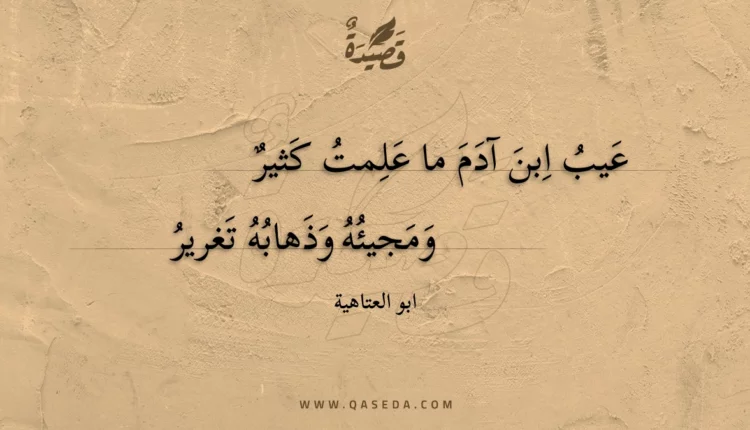 قَصِيدَةٌ
عَيبُ اِبنَ آدَمَ ما عَلِمتُ كَثيرٌ
وَمَجيئُهُ وَذَهابُهُ تَغريرُ
ابو العتاهية
WWW.QASEDA.COM